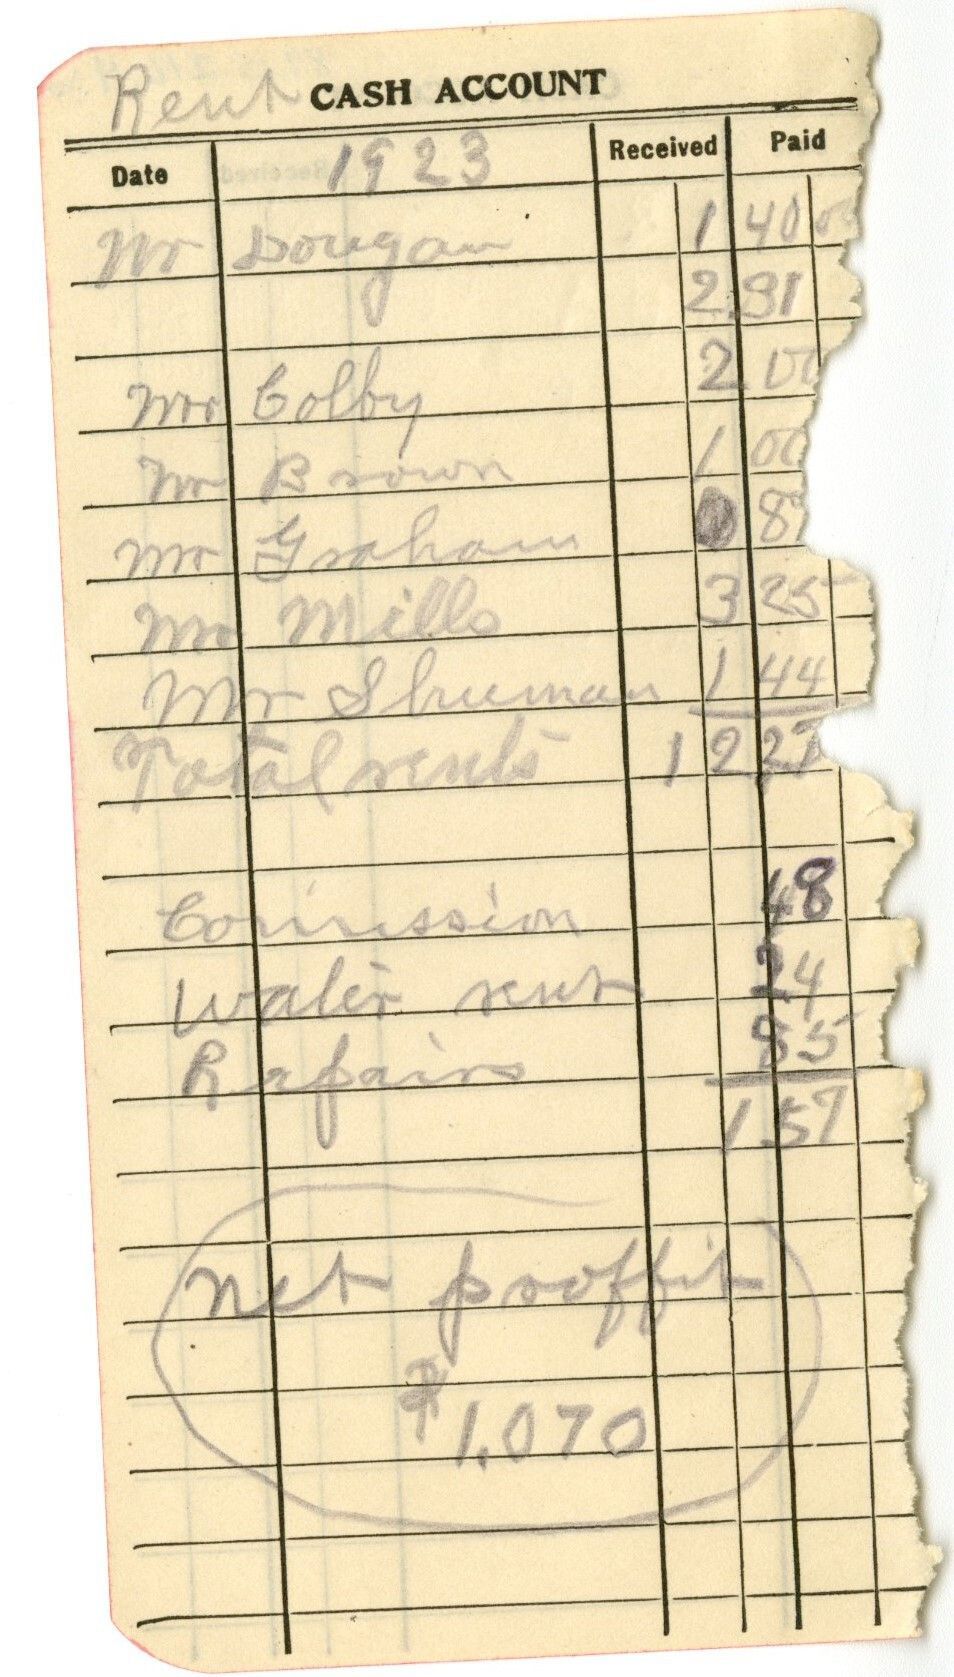 Rent CASH ACCOUNT
Date 1923 Received Paid
Mr Dougan 1 40 00
2 31
Mr Colby 2 00
Mr Brown 1 00
Mr Graham 87
Mr Mills 3 25
Mr Shuman 1 44
Total rents 1 2 27
Comission 48
Water rent 24
Repairs 85
1 57
Net proffit
$1,070